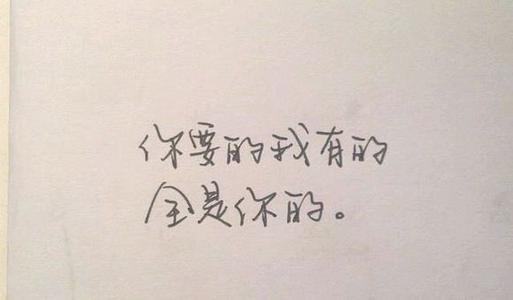 你要的我有的
全是你的。